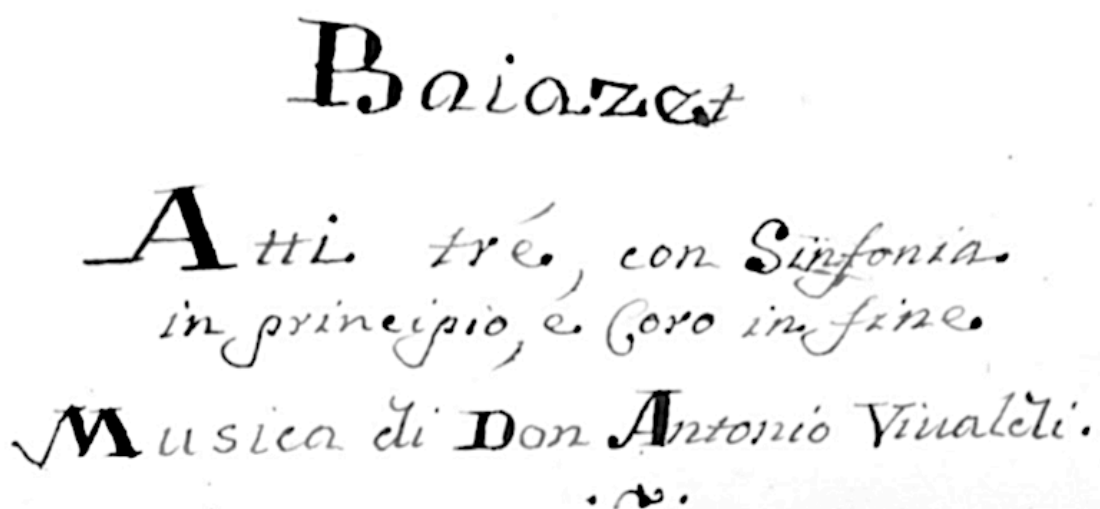 Baiazet
Atti tré, con Sinfonia.
in principio, é Coro in fine.
Musica di Don Antonio Viualdi.